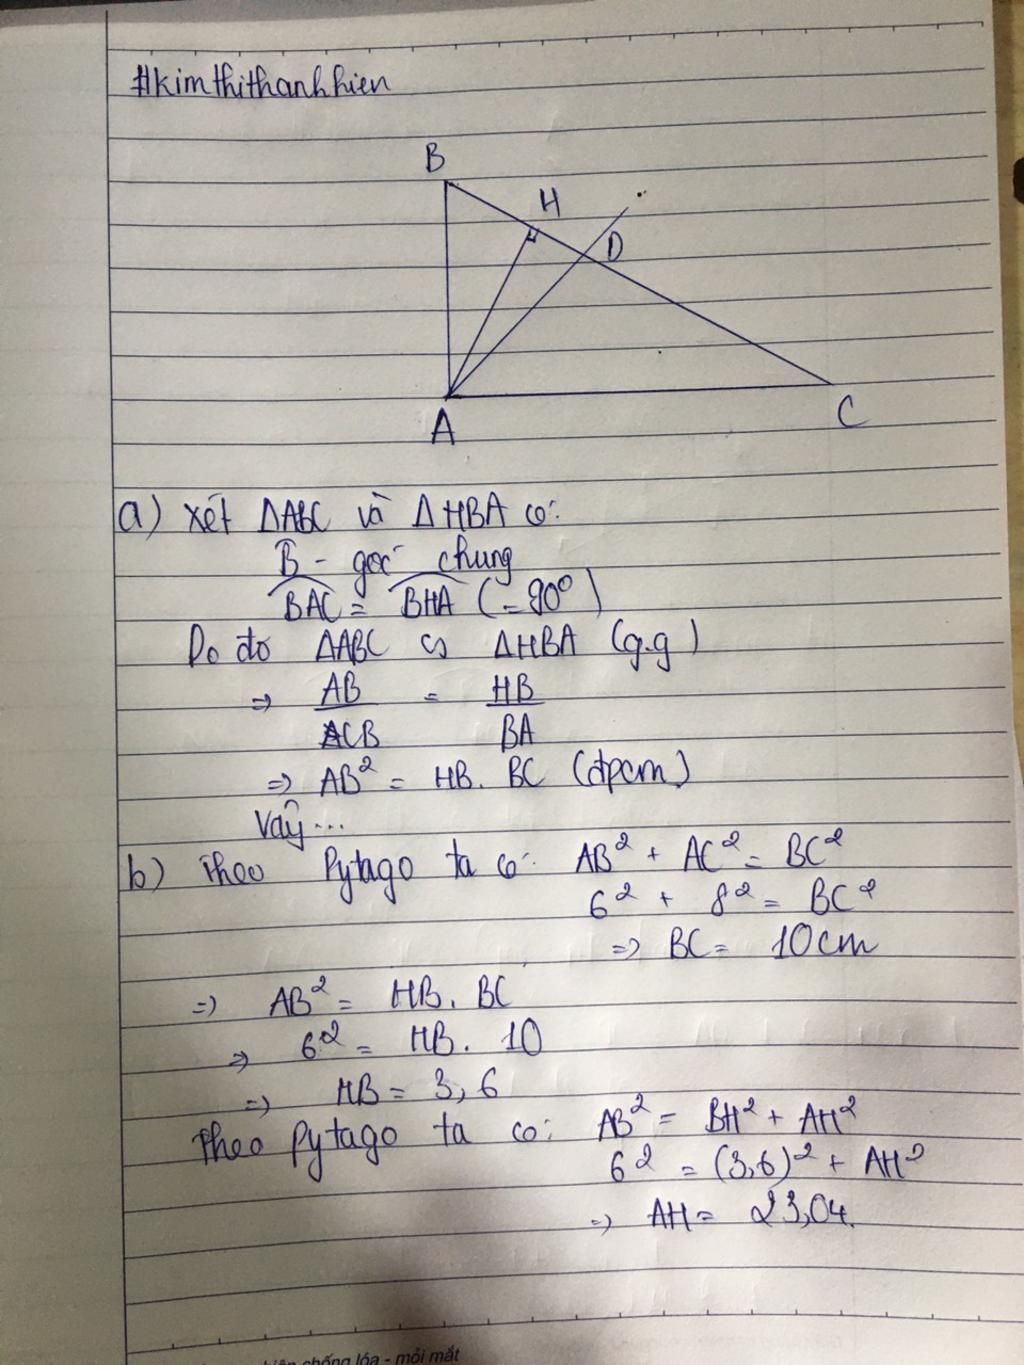 #kimthithanhhien
B
H
D
A
C
a) xét ΔABC và ΔHBA có:
B̂ - góc chung
BAC = BHA (= 90°)
Do đó ΔABC ∽ ΔHBA (g.g)
⇒ AB/CB = HB/BA
⇒ AB² = HB. BC (đpcm)
Vậy...
b) Theo Pytago ta có: AB² + AC² = BC²
6² + 8² = BC²
=> BC = 10cm
=> AB² = HB. BC
=> 6² = HB. 10
=> HB = 3,6
Theo Pytago ta có: AB² = BH² + AH²
6² = (3,6)² + AH²
=> AH = 23,04.
chống lóa - mỏi mắt